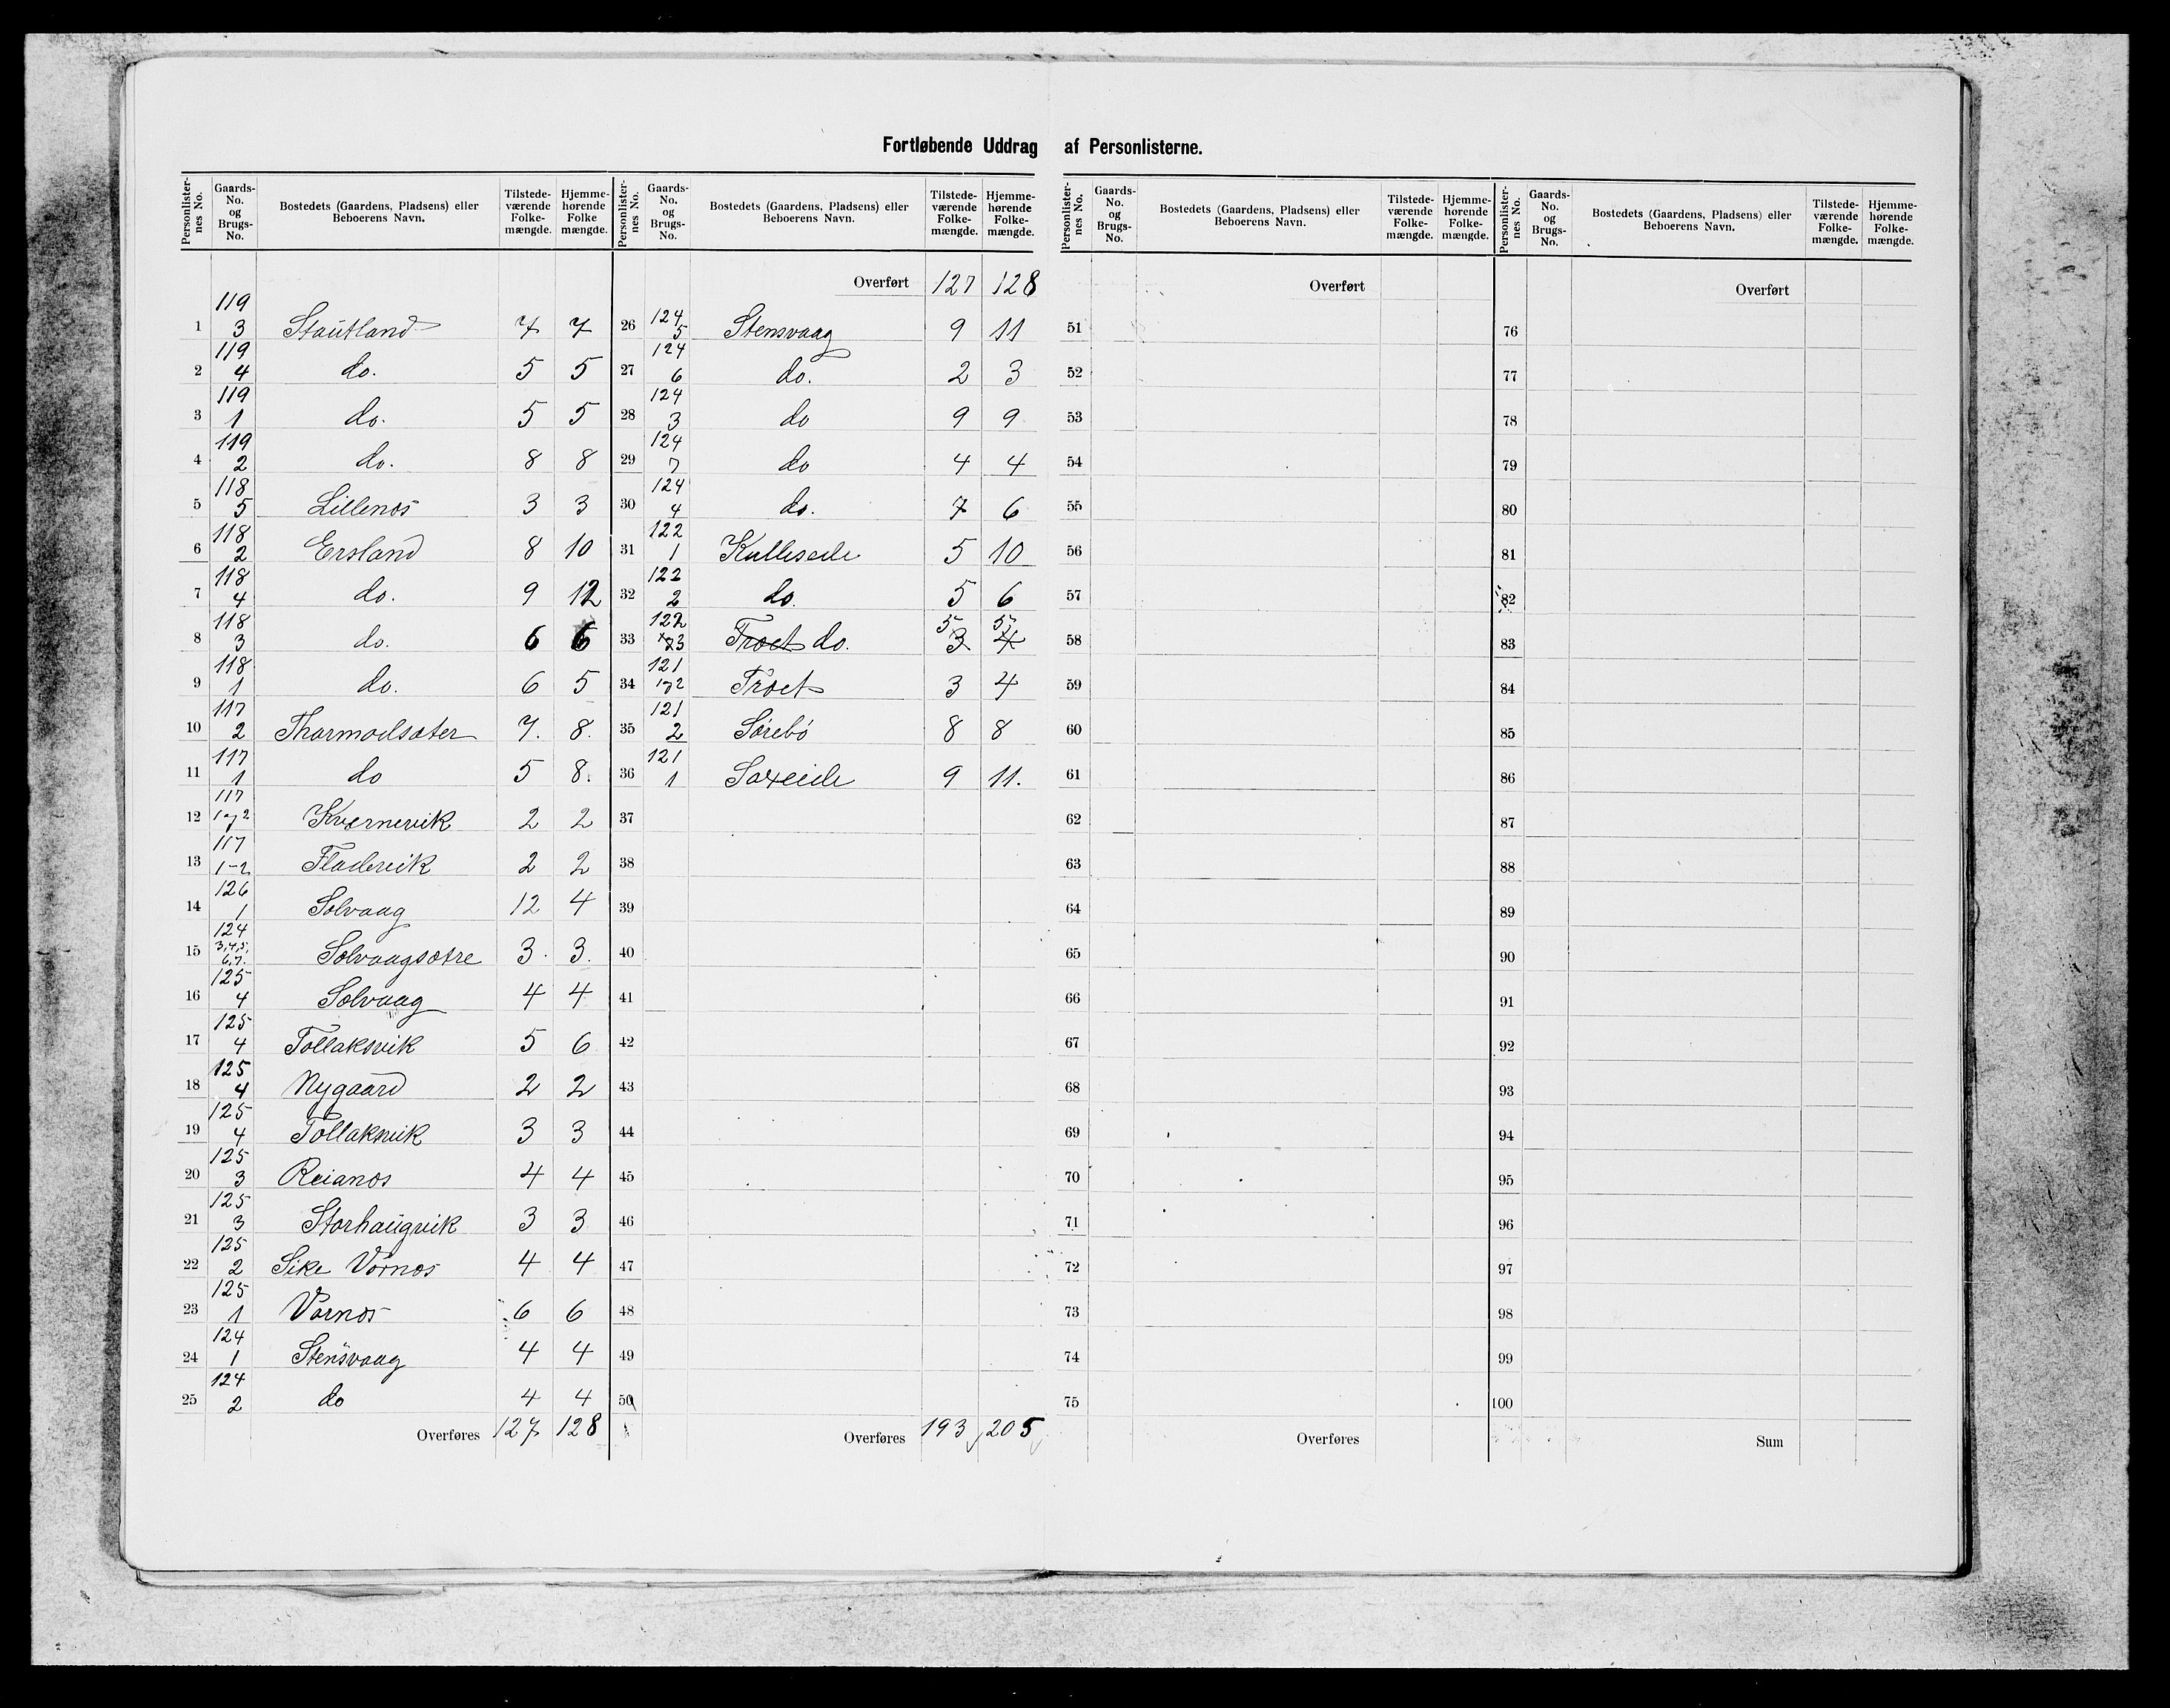 Fortløbende Uddrag af Personlisterne.
Personlisternes No. | Gaards-No. og Brugs-No. | Bostedets (Gaardens, Pladsens) eller Beboerens Navn. | Tilstedeværende Folkemængde. | Hjemmehørende Folke mængde.
1 | 119 3 | Stautland | 7 | 7
2 | 119 4 | do. | 5 | 5
3 | 119 1 | do. | 5 | 5
4 | 119 2 | do. | 8 | 8
5 | 118 5 | Lillenos | 3 | 3
6 | 118 2 | Ersland | 8 | 10
7 | 118 4 | do. | 9 | 12
8 | 118 3 | do. | 6 | 6
9 | 118 1 | do. | 6 | 5
10 | 117 2 | Thormodsæter | 7. | 8.
11 | 117 1 | do | 5 | 8.
12 | 117 1 og 2 | Kværnevik | 2 | 2
13 | 117 1-2 | Fladevik | 2 | 2
14 | 126 1 | Solvaag | 12 | 4
15 | 124 3,4,5, 6,7. | Solvaagsætre | 3. | 3.
16 | 125 4 | Solvaag | 4 | 4
17 | 125 4 | Tollaksvik | 5 | 6
18 | 125 4 | Nygaard | 2 | 2
19 | 125 4 | Tollaksvik | 3 | 3
20 | 125 3 | Reianos | 4 | 4
21 | 125 3 | Storhaugvik | 3 | 3
22 | 125 2 | Sike Vornos | 4 | 4
23 | 125 1 | Vornos | 6 | 6
24 | 124 1 | Stensvaag | 4 | 4
25 | 124 2 | do | 4 | 4
Overføres 127 128
Personlisternes No. | Gaards-No. og Brugs-No. | Bostedets (Gaardens, Pladsens) eller Beboerens Navn. | Tilstedeværende Folkemængde. | Hjemmehørende Folkemængde.
Overført 127 128
26 | 124 5 | Stensvaag | 9 | 11
27 | 124 6 | do. | 2 | 3
28 | 124 3 | do | 9 | 9
29 | 124 7 | do | 4 | 4
30 | 124 4 | do. | 7 | 6
31 | 122 1 | Kulleseide | 5 | 10
32 | 122 2 | do. | 5 | 6
33 | 122 3 | Troet do. | 5 3 | 5 4
34 | 121 1 og 2 | Troet | 3 | 4
35 | 121 2 | Sørebö | 8 | 8
36 | 121 1 | Saxeide | 9 | 11.
37
38
39
40
41
42
43
44
45
46
47
48
49
50
Overføres 193 205
Personlisternes No. | Gaards-No. og Brugs-No. | Bostedets (Gaardens, Pladsens) eller Beboerens Navn. | Tilstedeværende Folkemængde. | Hjemmehørende Folkemængde.
Overført
51
52
53
54
55
56
57
58
59
60
61
62
63
64
65
66
67
68
69
70
71
72
73
74
75
Overføres
Personlisternes No. | Gaards-No. og Brugs-No. | Bostedets (Gaardens, Pladsens) eller Beboerens Navn. | Tilstedeværende Folkemængde. | Hjemmehørende Folkemængde.
Overført
76
77
78
79
80
81
82
83
84
85
86
87
88
89
90
91
92
93
94
95
96
97
98
99
100
Sum